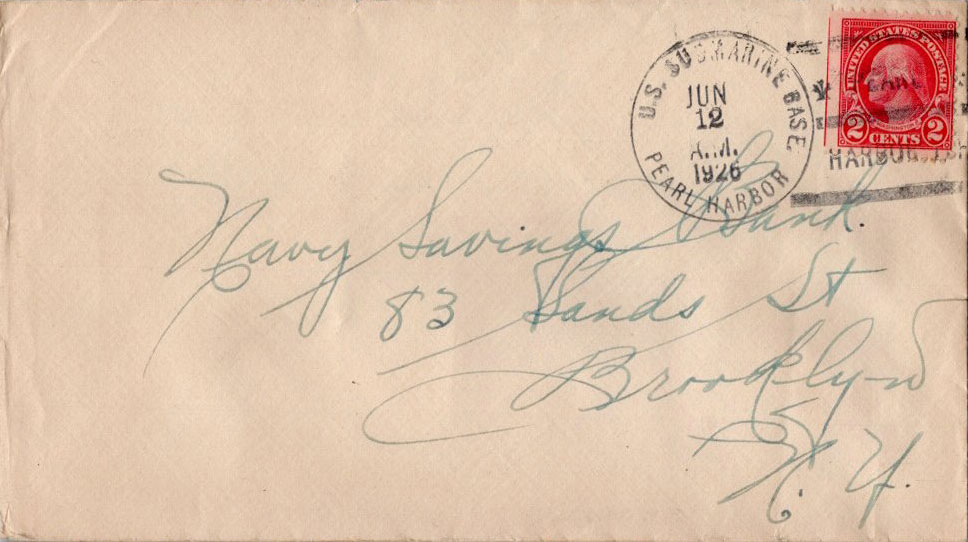 U.S. SUBMARINE BASE
JUN
12
A.M.
1926
PEARL HARBOR
UNITED STATES POSTAGE
2 CENTS 2
HARBOR
Navy Savings Bank.
83 Sands St
Brooklyn
N.Y.